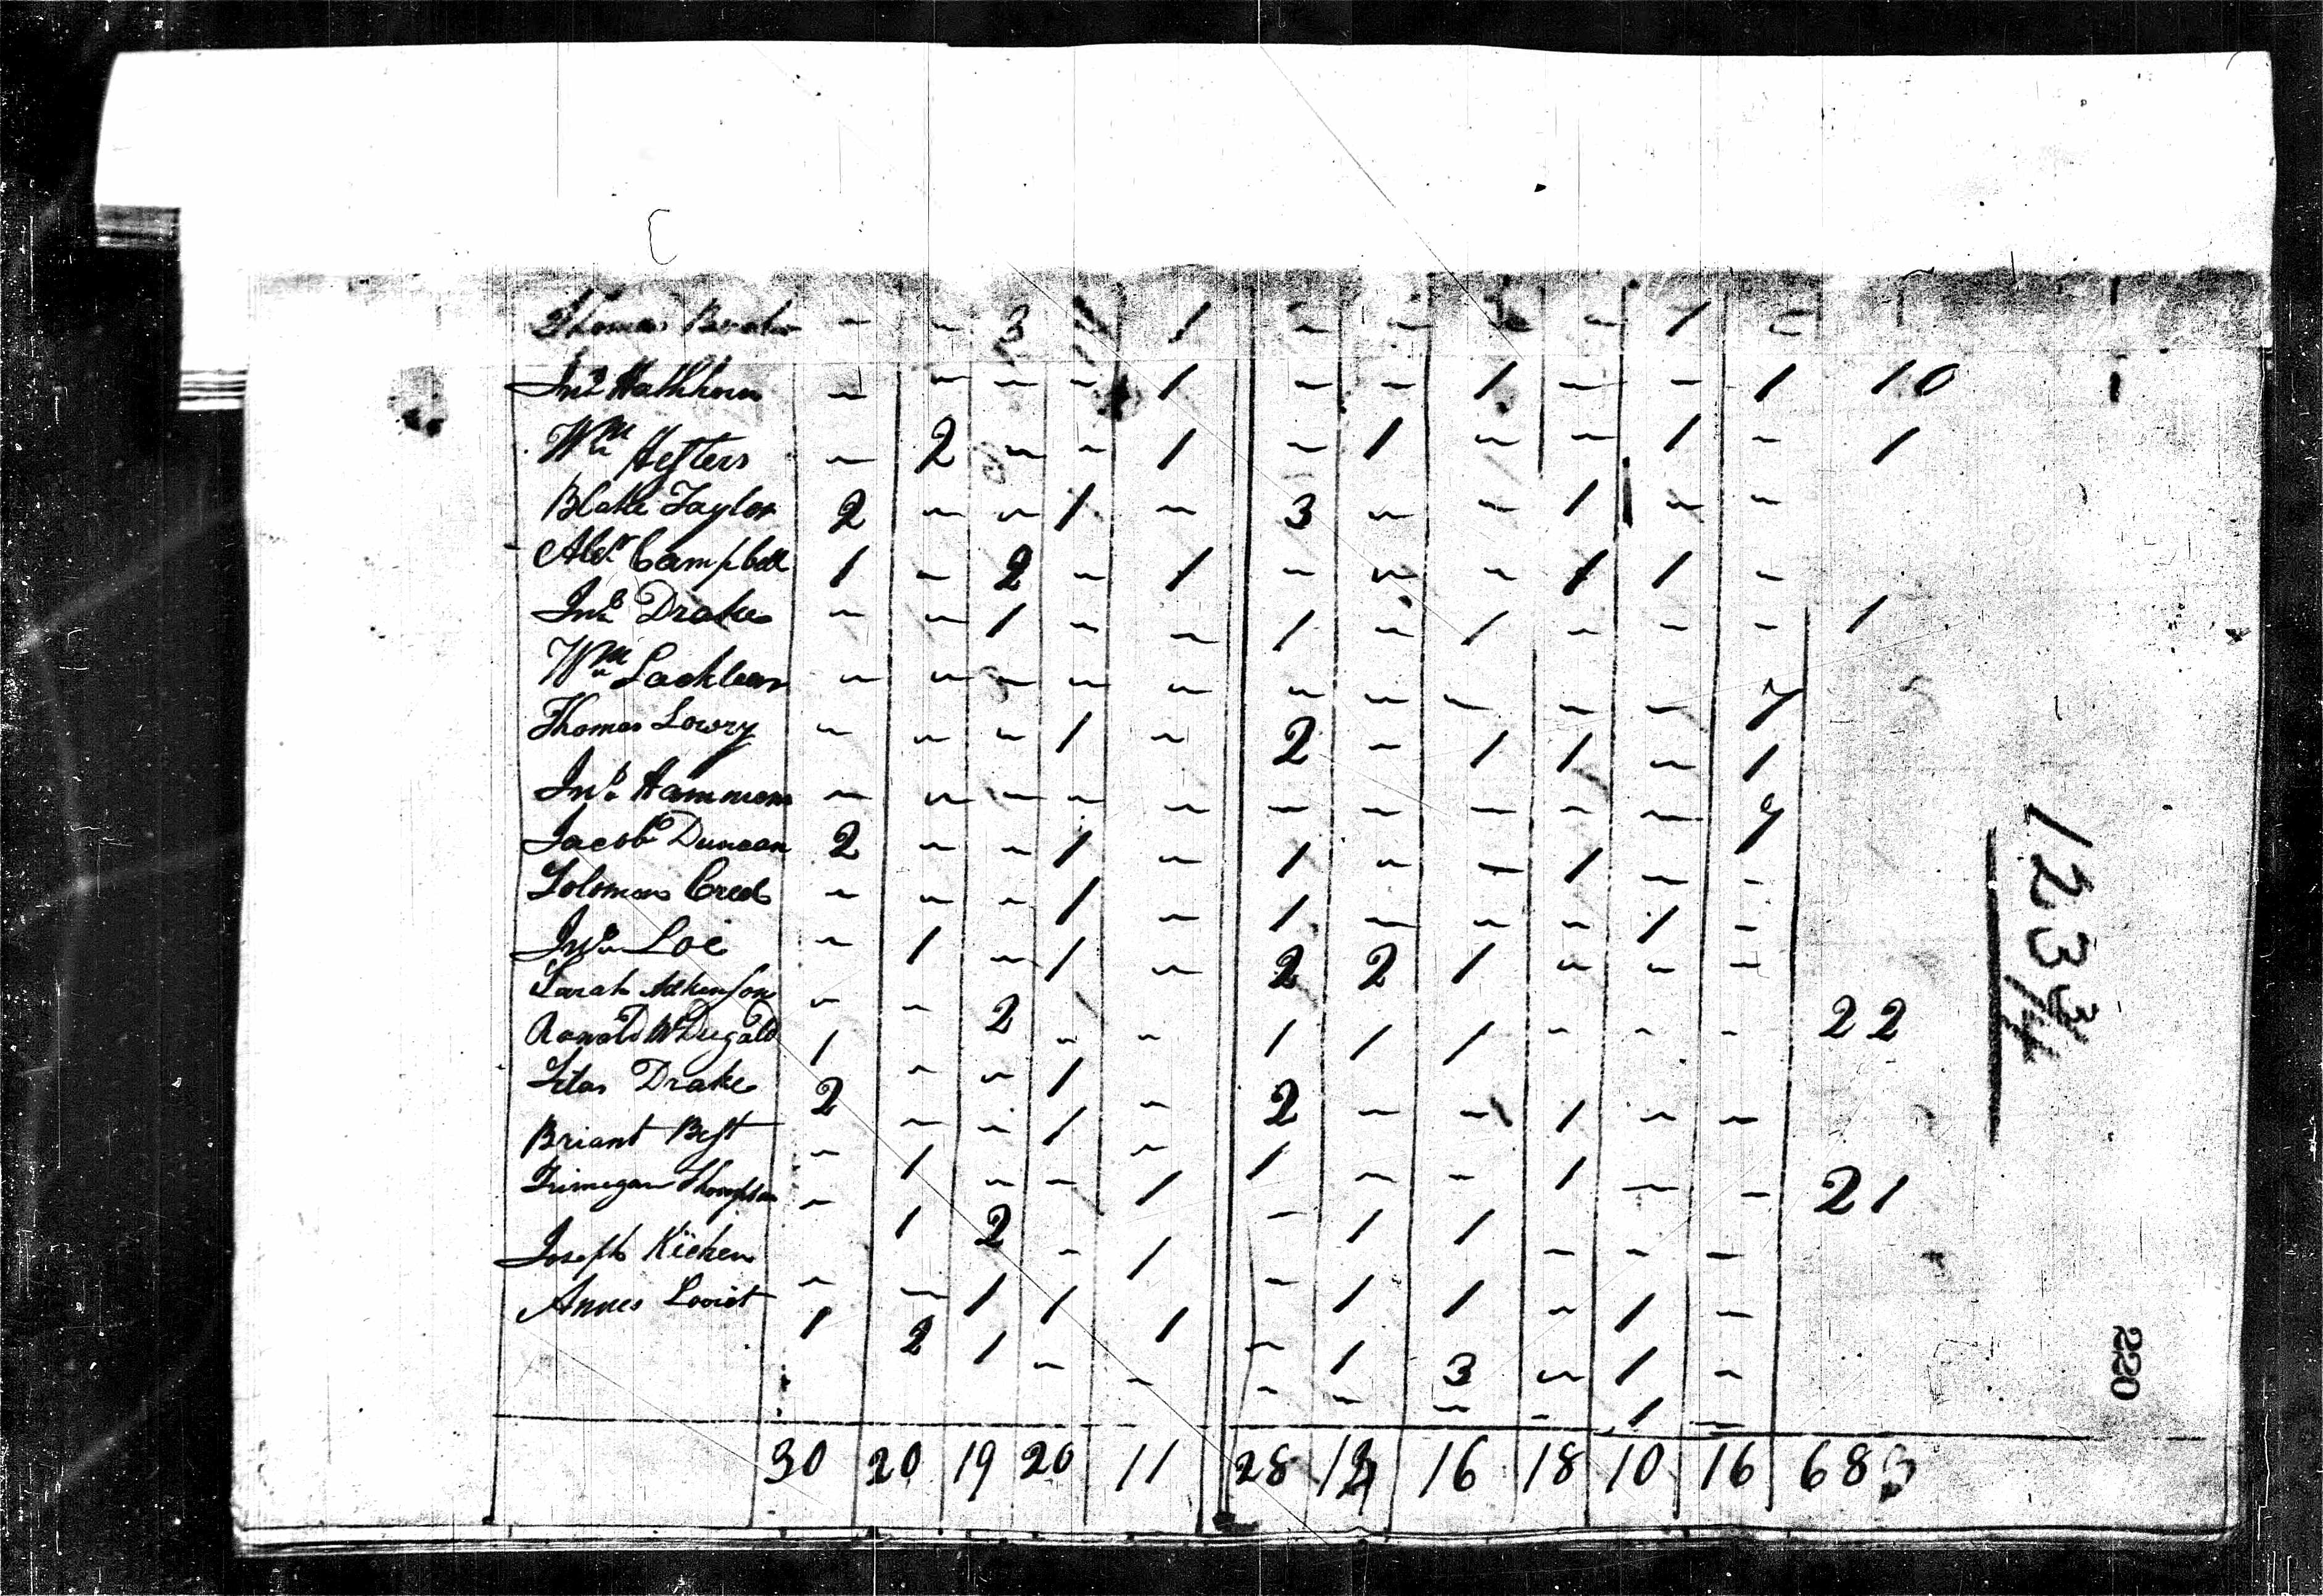 Thomas – – 3 1 – – – 1 –
Jno Hathhorn – – – – 1 – – 1 – – 1 10
Wm Hesters – 2 – – 1 – 1 – – 1 – 1
Blake Taylor 2 – – 1 – 3 – – 1 – –
Alexr Campbell 1 – 2 – 1 – – – 1 1 –
Jno Drake – – 1 – – 1 – 1 – – – 1
Wm Locklear – – – – – – – – – – 7
Thomas Lowry – – – 1 – 2 – 1 1 – 1
Jno Hammons – – – – – – – – – – 7
Jacob Duncan 2 – – 1 – 1 – – 1 – –
Solomon Creel – – – 1 – 1 – – – 1 –
Jno Loe – 1 – 1 – 2 2 1 – – –
Sarah Atkinson – – 2 – – 1 1 1 – – – 22
Ronald McDugald 1 – – 1 – 2 – – 1 – –
Silas Drake 2 – – 1 – 1 – – 1 – – 21
Briant Best – 1 – – 1 – 1 1 – – –
Thompson – 1 2 – 1 – 1 1 – 1 –
Joseph Kichen – – 1 1 1 – 1 3 – 1 –
Annes 1 2 1 – – – – – – 1 –
30 20 19 20 11 28 16 18 10 16 68
220